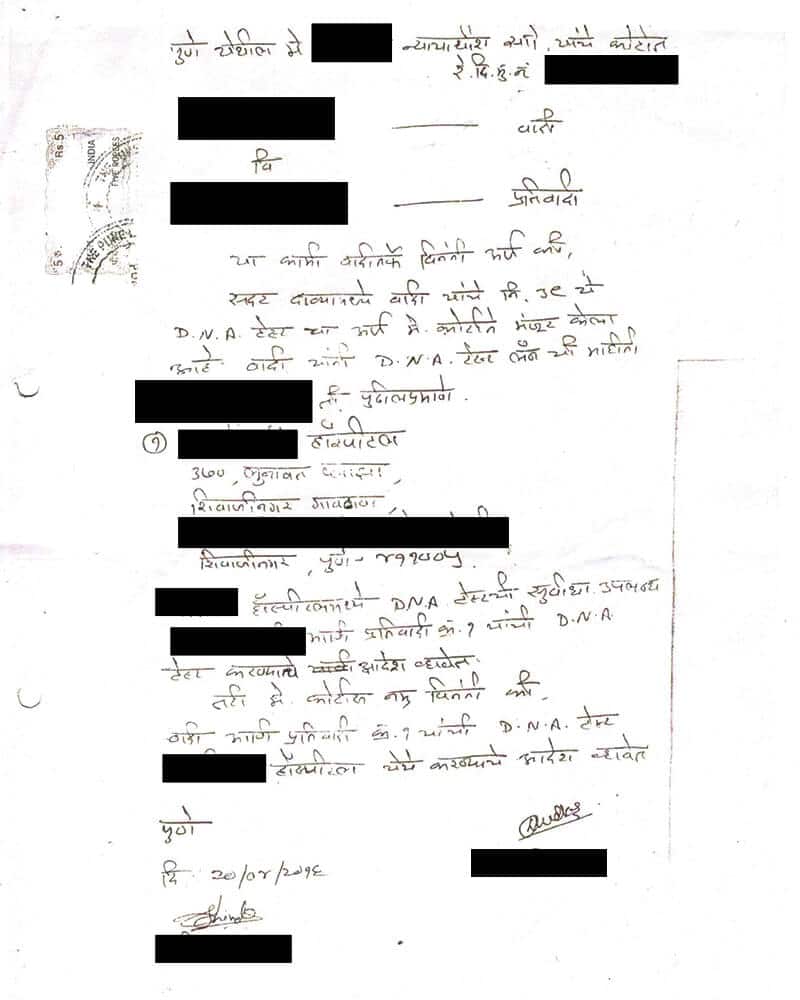 पुणे येथील मे न्यायाधीश सो. यांचे कोर्टात
रे. दि. मु. नं
वादी
Rs.5
INDIA
वि
प्रतिवादी
5 रु.
THE PUNE
या कामी वादीतर्फे विनंती अर्ज की,
सदर दाव्यामध्ये वादी यांचे नि. ३९ चे
D.N.A. टेस्ट चा अर्ज मे. कोर्टाने मंजूर केला
आहे. वादी यांनी D.N.A. टेस्ट ची माहिती
ती पुढीलप्रमाणे.
१ हॉस्पीटल
३७०,
शिवाजीनगर गावठाण,
शिवाजीनगर, पुणे- ४११००५.
हॉस्पीटलमध्ये D.N.A. टेस्टची सुवीधा उपलब्ध
आणि प्रतिवादी क्रं. १ यांची D.N.A.
टेस्ट करण्याचे आदेश व्हावेत.
तरी मे. कोर्टास नम्र विनंती की,
वादी आणि प्रतिवादी क्रं. १ यांची D.N.A. टेस्ट
हॉस्पीटल येथे करण्याचे आदेश व्हावेत
पुणे
दि. २०/०४/२०१६